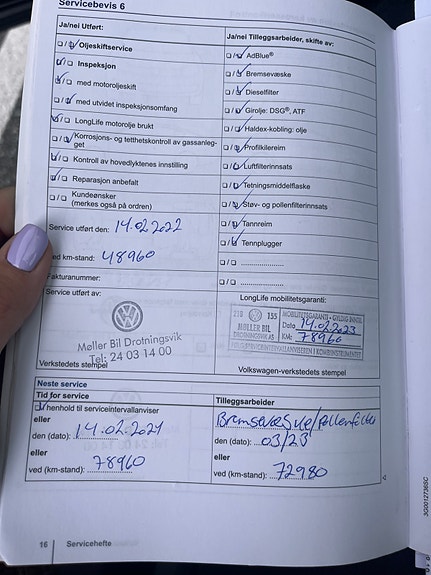 Servicebevis 6
Ja/nei Utført:
Ja/nei Tilleggsarbeider, skifte av:
Oljeskiftservice
AdBlue®
Inspeksjon
Bremsevæske
med motoroljeskift
Dieselfilter
med utvidet inspeksjonsomfang
Girolje: DSG®, ATF
LongLife motorolje brukt
Haldex-kobling: olje
Korrosjons- og tetthetskontroll av gassanleg-
get
Profilkilereim
Kontroll av hovedlyktenes innstilling
Luftfilterinnsats
Reparasjon anbefalt
Tetningsmiddelflaske
Kundeønsker
(merkes også på ordren)
Støv- og pollenfilterinnsats
Service utført den: 14.02.2022
Tannreim
Tennplugger
ved km-stand: 48960
Fakturanummer:
Service utført av:
LongLife mobilitetsgaranti:
Møller Bil Drotningsvik
Tel: 24 03 14 00
155
MOBILITETSGARANTI - GYLDIG INNTIL
MØLLER BIL
DROTNINGSVIK AS
Dato 14.02.2023
KM: 78960
Verkstedets stempel
Volkswagen-verkstedets stempel
Neste service
Tid for service
Tilleggsarbeider:
henhold til serviceintervallanviser
eller
den (dato): 14.02.2024
eller
ved (km-stand): 78960
den (dato): 03/23
eller
ved (km-stand): 72980
16 Servicehefte
3G0012736SC